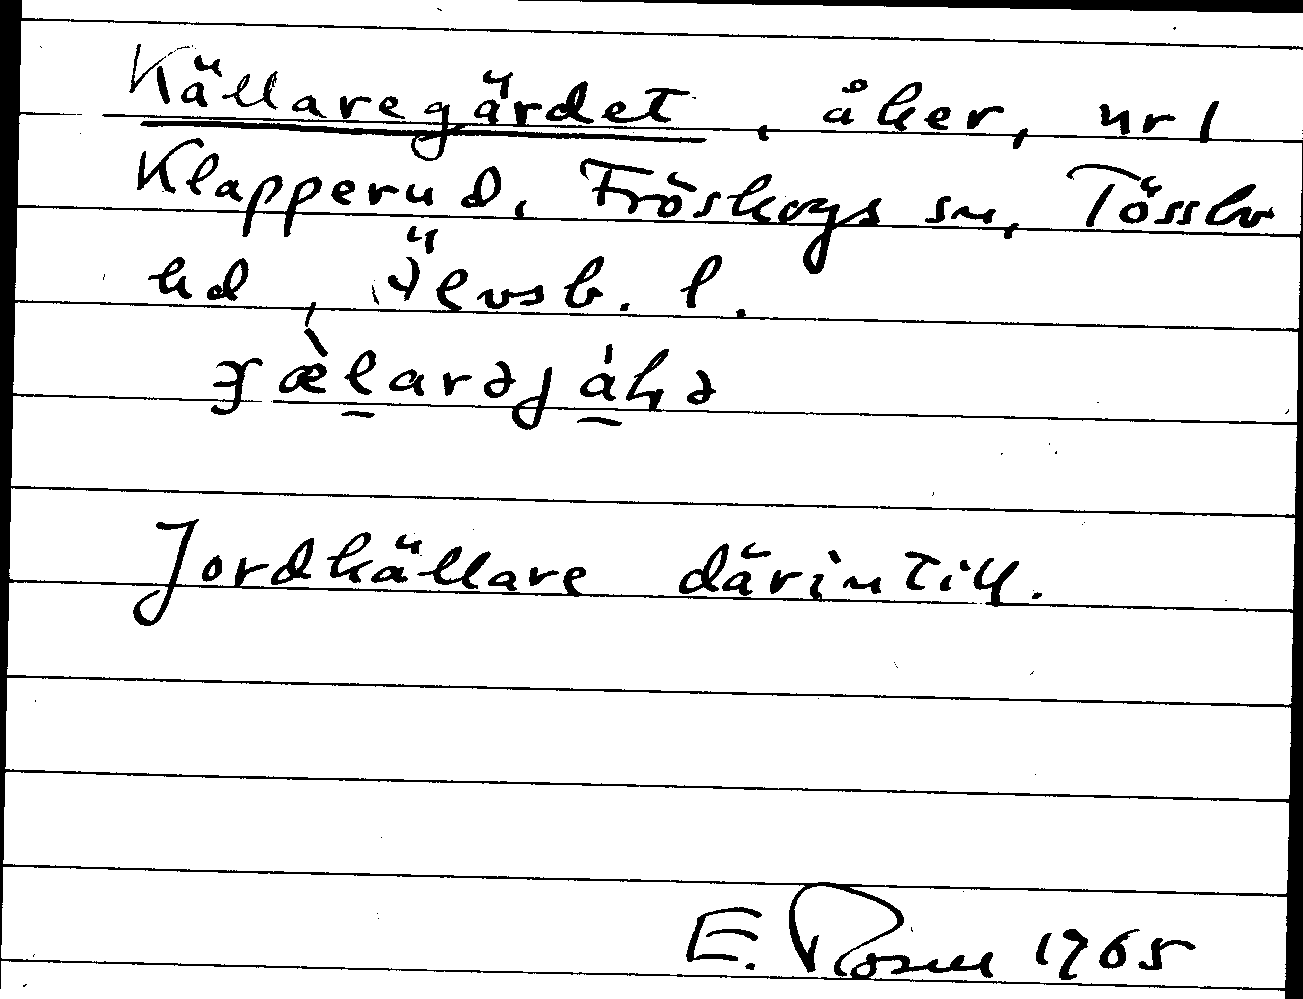 Källaregärdet, åker, nr 1
Klapperud, Fröskogs sn, Tössbo
hd, Älvsb. l.
Jordkällare därintill.
E. Rosell 1965